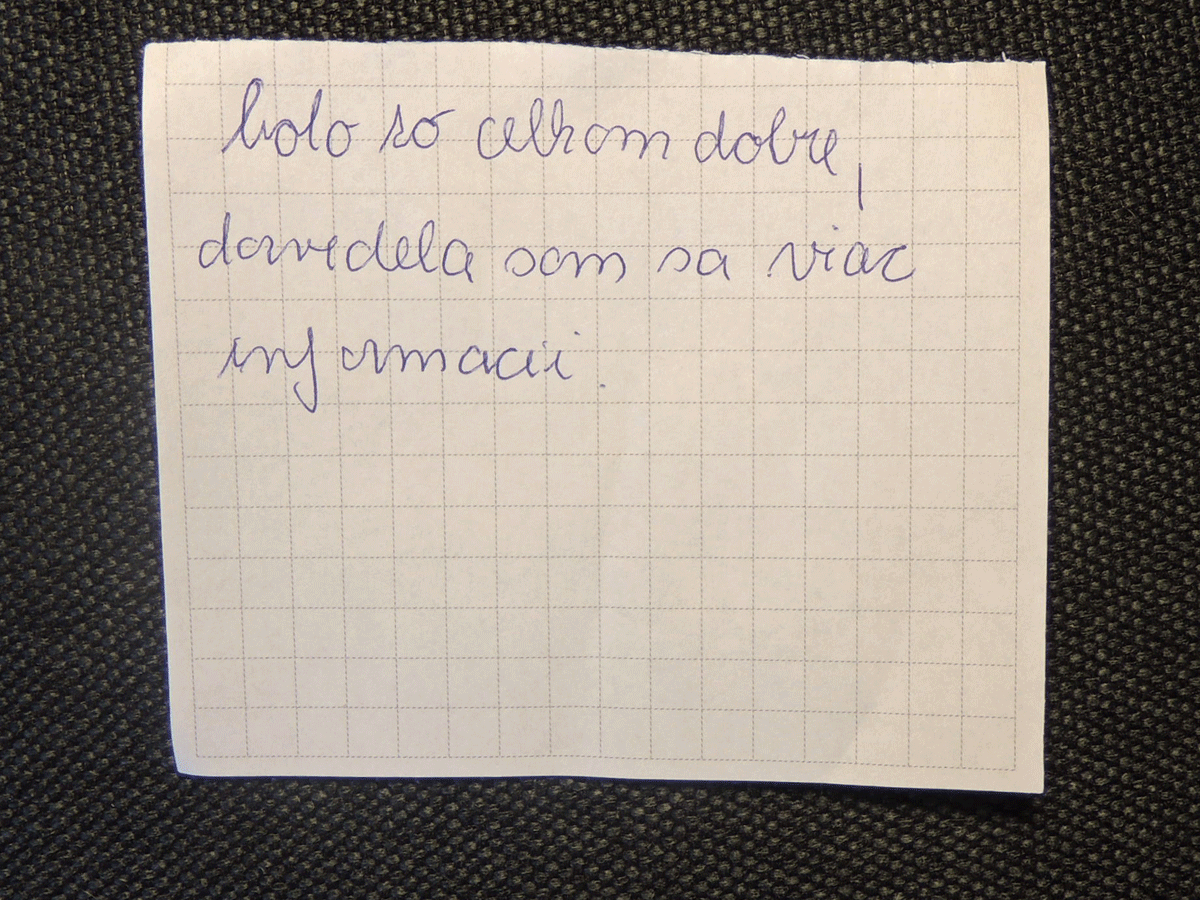 bolo to celkom dobre,
dozvedela som sa viac
informacii.